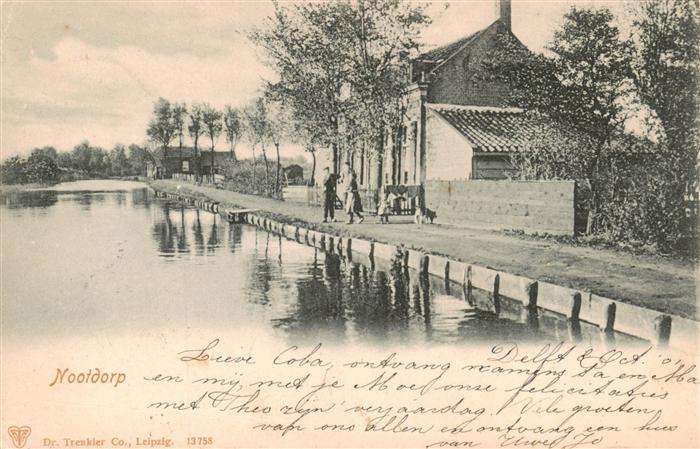 Delft 2 Oct. '01
Lieve Coba, ontvang namens Pa en Moe
Nootdorp
en mij, met je Moe onze felicitaties
met Theo zijn verjaardag. Vele groeten
van ons allen en ontvang een kus
van Uwe Jo
Dr. Trenkler Co., Leipzig. 13758